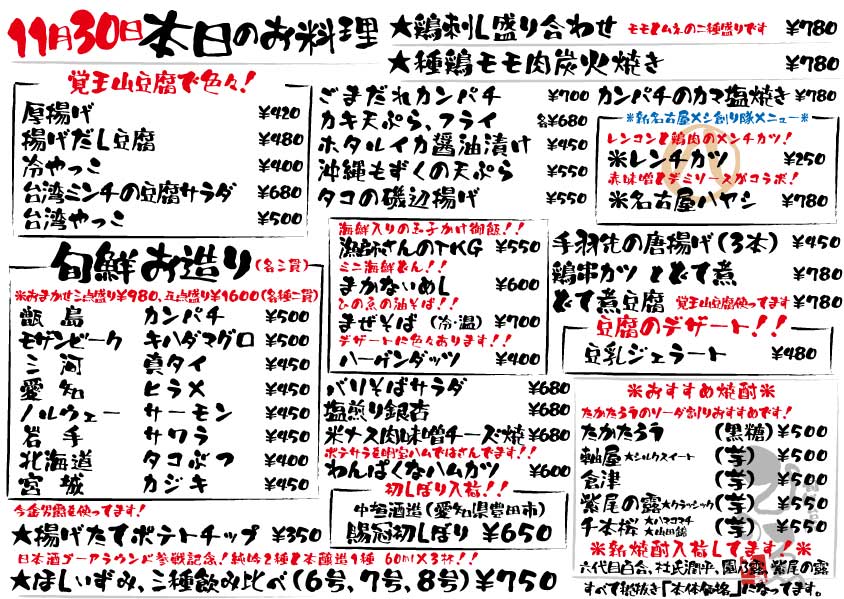 11月30日 本日のお料理
★鶏刺し盛り合わせ モモとムネの二種盛りです ¥780
★種鶏モモ肉炭火焼き ¥780
覚王山豆腐で色々!
厚揚げ ¥420
揚げだし豆腐 ¥480
冷やっこ ¥400
台湾ミンチの豆腐サラダ ¥680
台湾やっこ ¥500
ごまだれカンパチ ¥700
カキ天ぷら、フライ 各¥680
ホタルイカ醤油漬け ¥450
沖縄もずくの天ぷら ¥550
タコの磯辺揚げ ¥550
カンパチのカマ塩焼き ¥780
※新名古屋メシ創り隊メニュー※
レンコンと鶏肉のメンチカツ!
米レンチカツ ¥250
赤味噌とデミソースがコラボ!
米名古屋ハヤシ ¥780
旬鮮お造り (各三貫)
※おまかせ三点盛り¥980、五点盛り¥1600(各種二貫)
甑島 カンパチ ¥500
モザンビーク キハダマグロ ¥500
三河 真タイ ¥450
愛知 ヒラメ ¥450
ノルウェー サーモン ¥450
岩手 サワラ ¥450
北海道 タコぶつ ¥400
宮城 カジキ ¥450
海鮮入りの玉子かけ御飯!!
漁師さんのTKG ¥550
ミニ海鮮どん!!
まかないめし ¥600
ひの魚の油そば!!
まぜそば (冷・温) ¥700
デザートに色々あります!!
ハーゲンダッツ ¥400
手羽先の唐揚げ(3本) ¥450
鶏串カツ とどて煮 ¥780
どて煮豆腐 覚王山豆腐使ってます ¥780
豆腐のデザート!!
豆乳ジェラート ¥480
バリそばサラダ ¥680
塩煎り銀杏 ¥680
米ナス肉味噌チーズ焼 ¥680
ポテサラを明宝ハムではさんでます!!
わんぱくなハムカツ ¥600
初しぼり入荷!!
中垣酒造(愛知県豊田市)
賜冠初しぼり ¥650
※おすすめ焼酎※
たかたろうのソーダ割りおすすめです!
たかたろう (黒糖) ¥500
軸屋 ★シルクスイート (芋) ¥500
倉津 (芋) ¥500
紫尾の露 ★クラッシック (芋) ¥550
千本桜 ★ハマコマチ ★山田錦 (芋) ¥550
※新焼酎入荷してます!※
六代目百合、杜氏潤平、園乃露、紫尾の露
すべて税抜き「本体価格」になってます。
今金男爵を使ってます!
★揚げたてポテトチップ ¥350
日本酒ゴーアラウンド参戦記念!純吟2種と本醸造1種 60ml×3杯!!
★ほしいずみ、三種飲み比べ(6号、7号、8号) ¥750